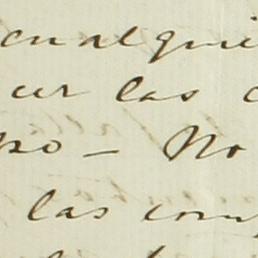 cualqui
cer las c
po — No
las com